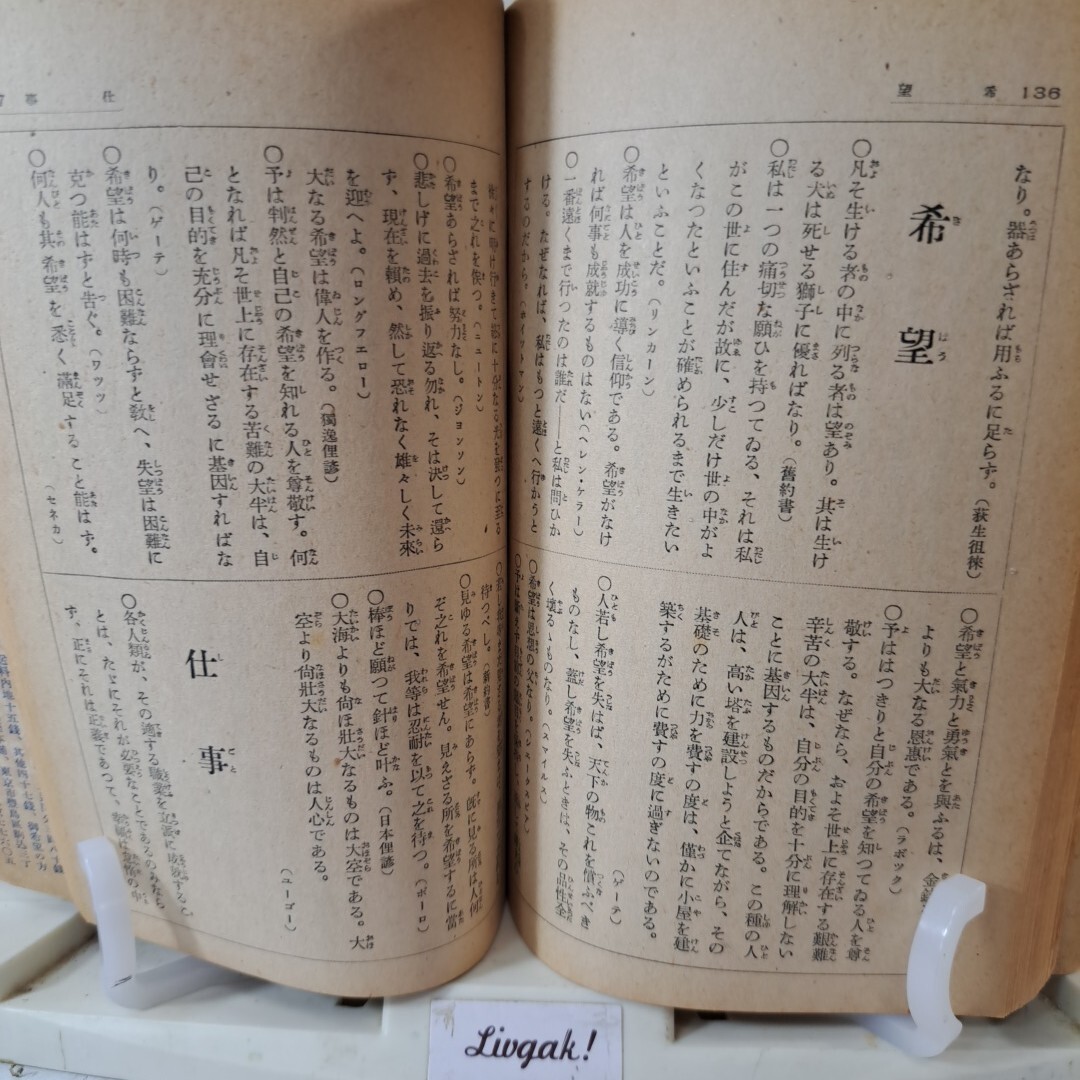 136
希望
なり。器あらざれば用ふるに足らず。（荻生徂徠）
希望
○凡そ生ける者の中に列る者は望あり。其は生け
る犬は死せる獅子に優ればなり。（舊約書）
○私は一つの痛切な願ひを持つてゐる、それは私
がこの世に住んだが故に、少しだけ世の中がよ
くなつたといふことが確められるまで生きたい
といふことだ。（リンカーン）
○希望は人を成功に導く信仰である。希望がなけ
れば何事も成就するものはない（ヘレン・ケラー）
○一番遠くまで行つたのは誰だ――と私は問ひか
ける。なぜなれば、私はもつと遠くへ行かうと
するのだから。（ホイットマン）
○希望と氣力と勇氣とを與ふるは、金
よりも大なる恩惠である。（ラボック）
○予ははつきりと自分の希望を知つてゐる人を尊
敬する。なぜなら、およそ世上に存在する艱難
辛苦の大半は、自分の目的を十分に理解しない
ことに基因するものだからである。この種の人
人は、高い塔を建設しようと企てながら、その
基礎のために力を費す度は、僅かに小屋を建
築するがために費すの度に過ぎないのである。
（ゲーテ）
○人若し希望を失はば、天下の物これを償ふべき
ものなし、蓋し希望を失ふときは、その品性全
く壞るゝものなり。（スマイルス）
○希望は思想の父なり。（シェークスピア）
仕事
まで之れを俟つ。（ニュートン）
○希望あらざれば努力なし。（ジョンソン）
○悲しげに過去を振り返る勿れ、そは決して還ら
ず、現在を賴め、然して恐れなく雄々しく未來
を迎へよ。（ロングフエロー）
大なる希望は偉人を作る。（獨逸俚諺）
○予は判然と自己の希望を知れる人を尊敬す。何
となれば凡そ世上に存在する苦難の大半は、自
己の目的を充分に理會せざるに基因すればな
り。（ゲーテ）
○希望は何時も困難ならずと敎へ、失望は困難に
克つ能はずと告ぐ。（ワッツ）
○何人も其希望を悉く滿足すること能はず。
（セネカ）
待つべし。（新約書）
○見ゆる希望は希望にあらず。既に見る所は人何
ぞ之れを希望せん。見えざる所を希望するに當
りては、我等は忍耐を以て之を待つ。（ポーロ）
○棒ほど願つて針ほど叶ふ。（日本俚諺）
○大海よりも尙ほ壯大なるものは大空である。大
空より尙壯大なるものは人心である。
（ユーゴー）
仕事
○各人類が、その進する職業を立派に成
とは、たしにそれが必要なことであるのみなら
ず、正にそれは正義であつて、
Livgak!